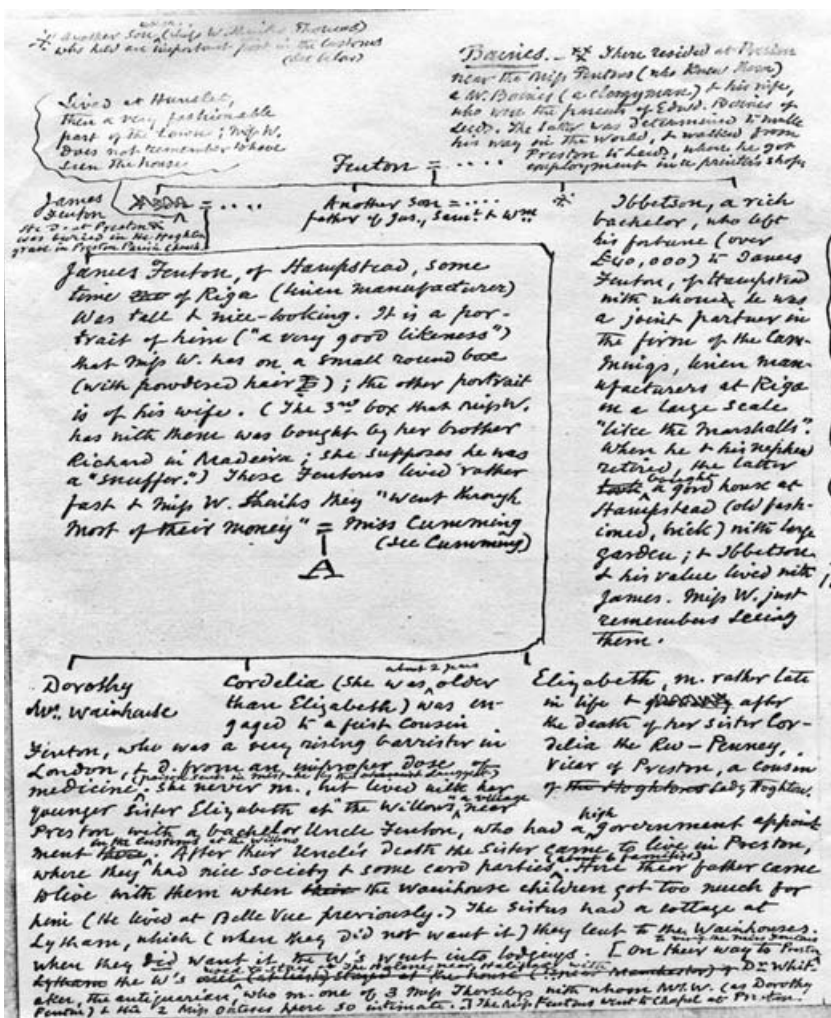 Another Son (Miss W. thinks Thomas)
who held an important post in the Customs
(see below)
Baines. — ** There resided at Preston
near the Miss Fentons (who knew them)
a Mr. Baines (a clergyman) & his wife,
who were the parents of Edwd. Baines of
Leeds. The latter was determined to make
his way in the world, & walked from
Preston to Leeds, where he got
employment in a printer's shop.
Lived at Hunslet,
then a very fashionable
part of the Town; Miss W.
does not remember to have
seen the house
Fenton = ....
James
Fenton
= ....
He D. at Preston &
was buried in the Hoghton
grave in Preston Parish Church.
Another Son = ....
father of Jas., Saml. & Wm.
Ibbetson, a rich
bachelor, who left
his fortune (over
£40,000) to James
Fenton, of Hampstead
with whom he was
a joint partner in
the firm of the Cum-
mings, linen man-
ufacturers at Riga
on a large scale
"like the Marshalls".
When he & his nephew
retired, the latter
took bought a good house at
Hampstead (old fash-
ioned, brick) with large
garden; & Ibbetson
& his valet lived with
James. Miss W. just
remembers seeing
them.
James Fenton, of Hampstead, some
time of Riga (linen manufacturer)
was tall & nice-looking. It is a por-
trait of him ("a very good likeness")
that Miss W. has on a small round box
(with powdered hair); the other portrait
is of his wife. (The 3rd box that Miss W.
has with these was bought by her brother
Richard in Madeira; she supposes he was
a "snuffer.") These Fentons lived rather
fast & Miss W. thinks they "went through
most of their money" = Miss Cumming
(see Cumming)
A
Dorothy
Mrs. Wainhouse
Cordelia (she was about 2 years older
than Elizabeth) was en-
gaged to a first cousin
Fenton, who was a very rising barrister in
London, & D. from an improper dose of
medicine. (poison given in mistake by the druggist) She never m., but lived with her
younger sister Elizabeth at "the Willows", a village near
Preston with a bachelor Uncle Fenton, who had a high government appoint
ment in the Customs at the Willows. After their Uncle's death the Sister came to live in Preston,
where they had nice society & some card parties (about 6 families). Here their father came
to live with them when their the Wainhouse children got too much for
him (He lived at Belle Vue previously.) The Sisters had a cottage at
Lytham, which (when they did not want it) they lent to the Wainhouses.
when they did want it the W's went into lodgings. [On their way to Preston to see the Miss Fentons
Lytham the W's used to stay at the house of Dr. Whit-
aker, the antiquarian, who m. one of 3 Miss Thoresbys with whom Mrs. W. (as Dorothy
Fenton) & the 2 Miss Oateses were so intimate.] The Miss Fentons went to Chapel at Preston.
Elizabeth, m. rather late
in life & after
the death of her sister Cor-
delia the Rev — Penney,
Vicar of Preston, a cousin
of the Hoghtons Lady Hoghton.